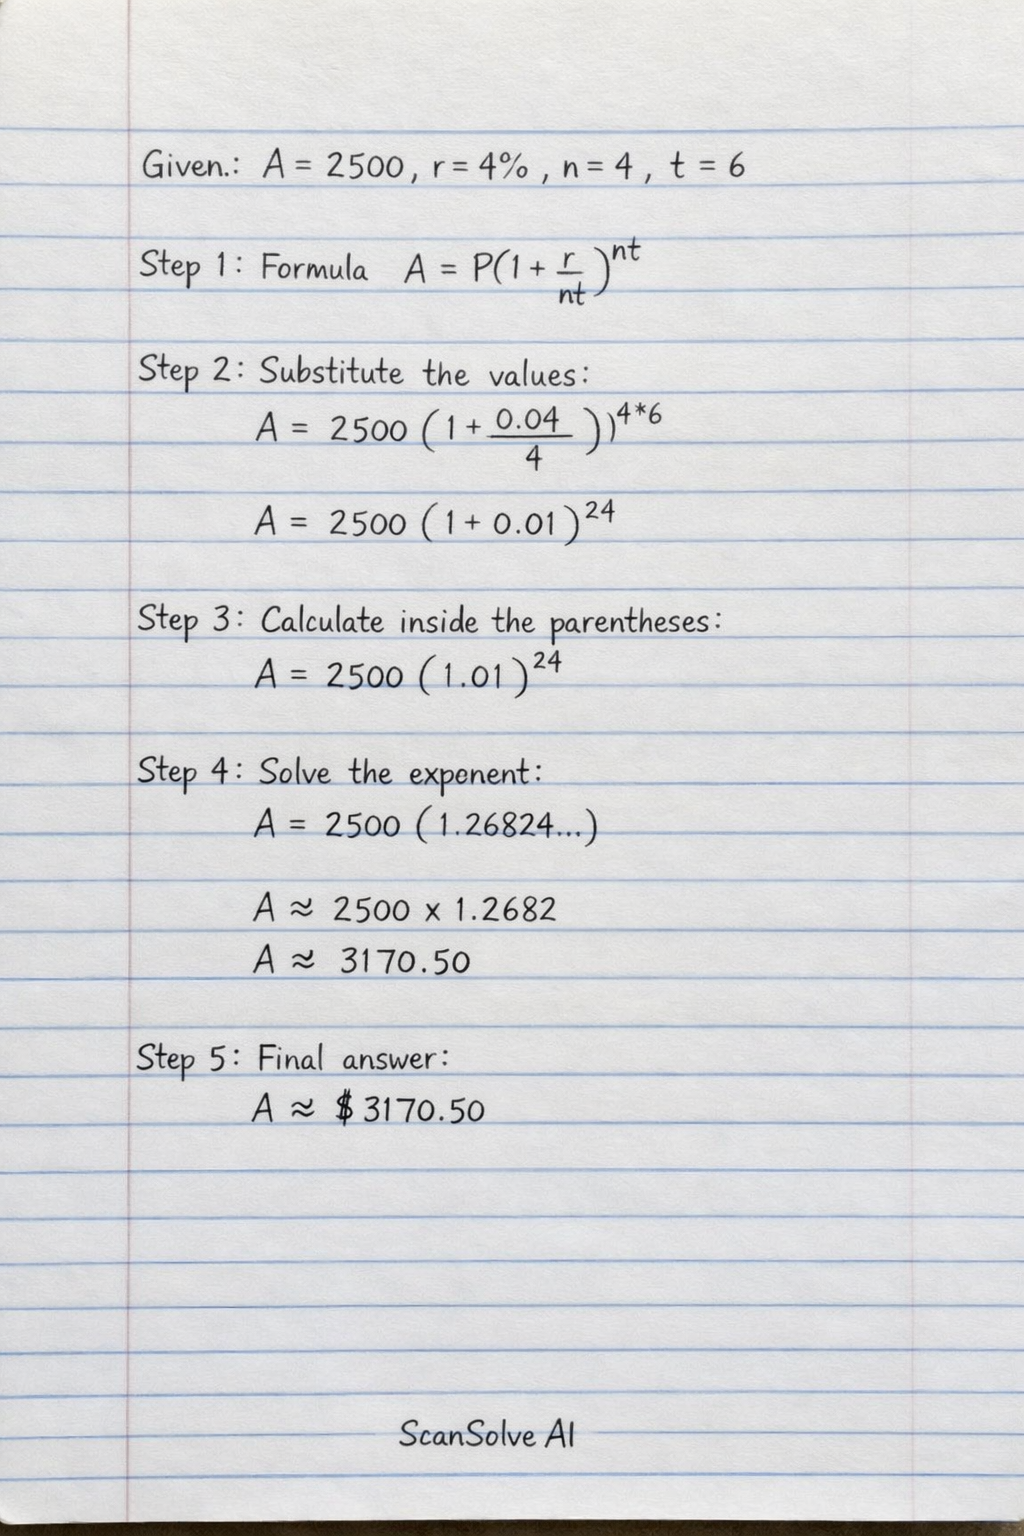 Given.: A = 2500, r = 4% , n = 4 , t = 6
Step 1: Formula A = P(1 + r/nt)^nt
Step 2: Substitute the values:
A = 2500 (1 + 0.04/4))^4*6
A = 2500 (1 + 0.01)^24
Step 3: Calculate inside the parentheses:
A = 2500 (1.01)^24
Step 4: Solve the exponent:
A = 2500 (1.26824...)
A ≈ 2500 x 1.2682
A ≈ 3170.50
Step 5: Final answer:
A ≈ $3170.50
ScanSolve AI